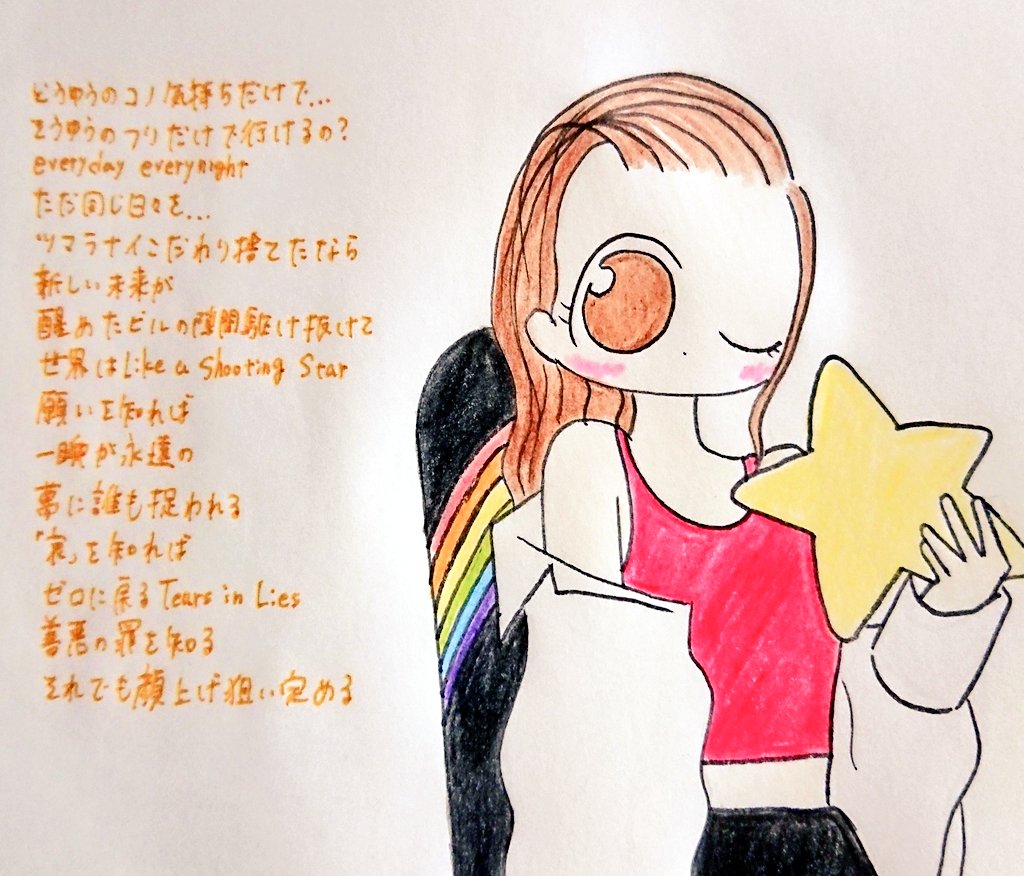 どうゆうのコノ気持ちだけで...
そうゆうのフリだけで行けるの?
everyday everynight
ただ同じ日々を...
ツマラナイこだわり捨てたなら
新しい未来が
醒めたビルの隙間駆け抜けて
世界はLike a Shooting Star
願いを知れば
一瞬が永遠の
夢に誰も捉われる
「哀」を知れば
ゼロに戻るTears in Lies
善悪の罪を知る
それでも顔上げ狙い定める